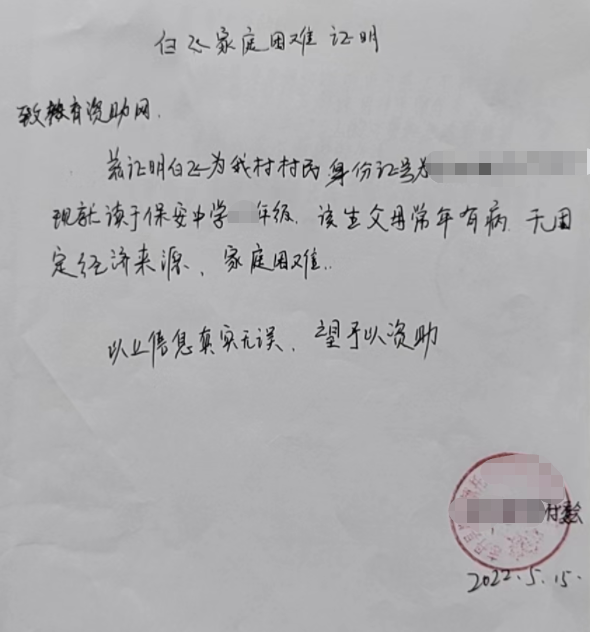 白飞家庭困难证明
致教育资助网.
兹证明白飞为我村村民身份证号为
现就读于保安中学 年级. 该生父母常年有病 无固
定经济来源、家庭困难.
以上信息真实无误、望予以资助
村委会
2022.5.15.